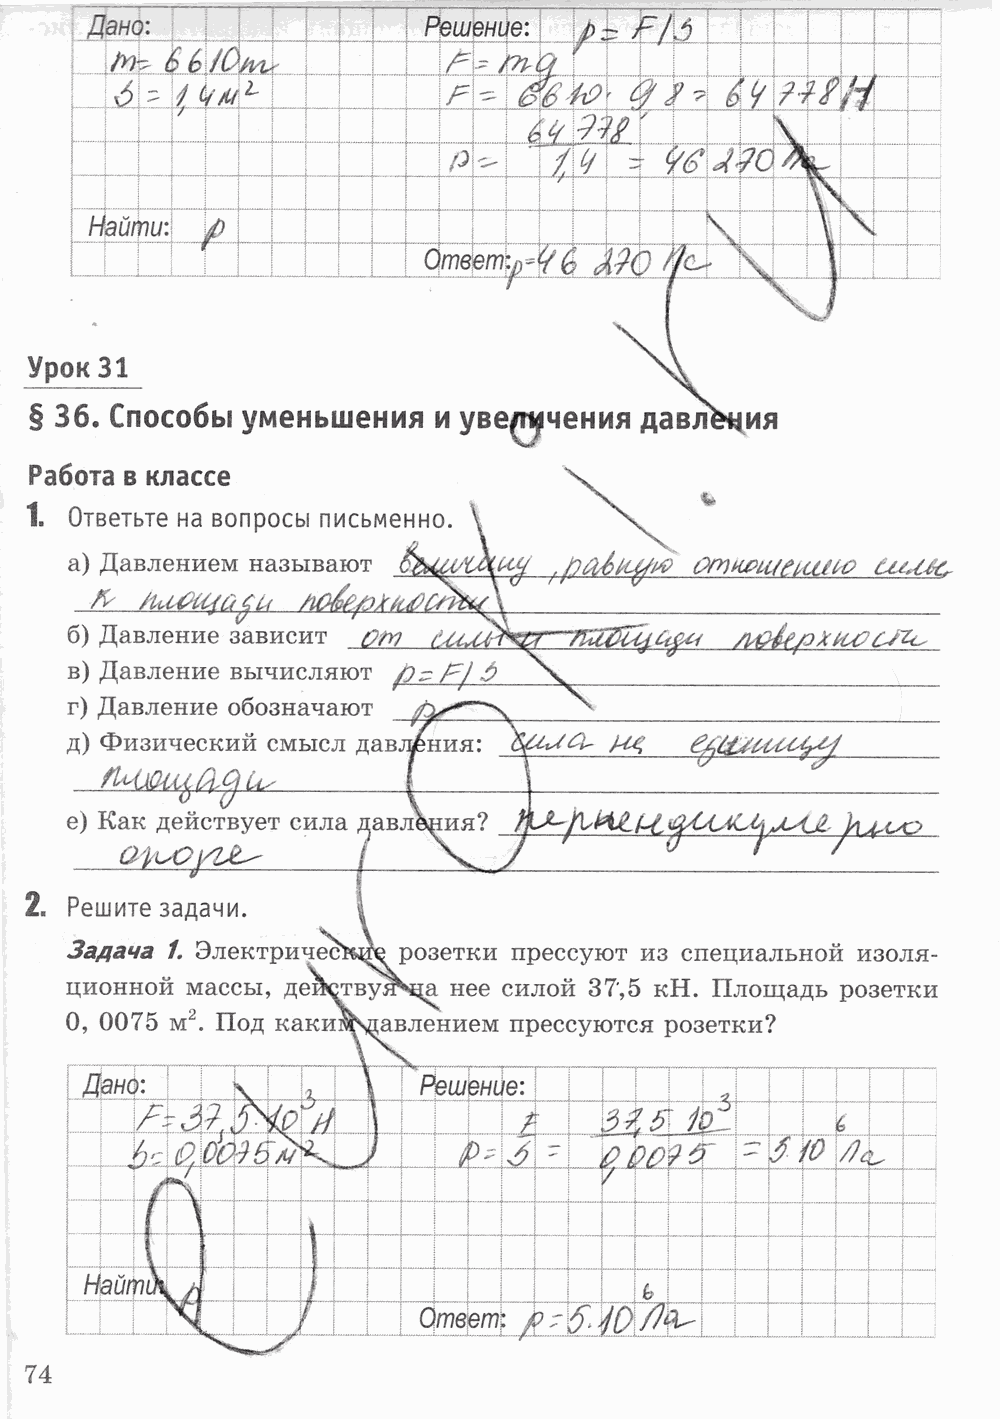 Дано: Решение: p = F/S
m = 6610т F = mg
S = 1,4 м² F = 6610 · 9,8 = 64 778 Н
64 778
p = 1,4 = 46 270 Па
Найти: p
Ответ: p = 46 270 Па
Урок 31
§ 36. Способы уменьшения и увеличения давления
Работа в классе
1. Ответьте на вопросы письменно.
а) Давлением называют величину, равную отношению силы
к площади поверхности
б) Давление зависит от силы и площади поверхности
в) Давление вычисляют p = F/S
г) Давление обозначают p
д) Физический смысл давления: сила на единицу
площади
е) Как действует сила давления? перпендикулярно
опоре
2. Решите задачи.
Задача 1. Электрические розетки прессуют из специальной изоля-
ционной массы, действуя на нее силой 37,5 кН. Площадь розетки
0, 0075 м². Под каким давлением прессуются розетки?
Дано: Решение:
F = 37,5·10³ Н F 37,5 10³
S = 0,0075 м² p = S = 0,0075 = 5·10⁶ Па
Найти: p
Ответ: p = 5·10⁶ Па
74